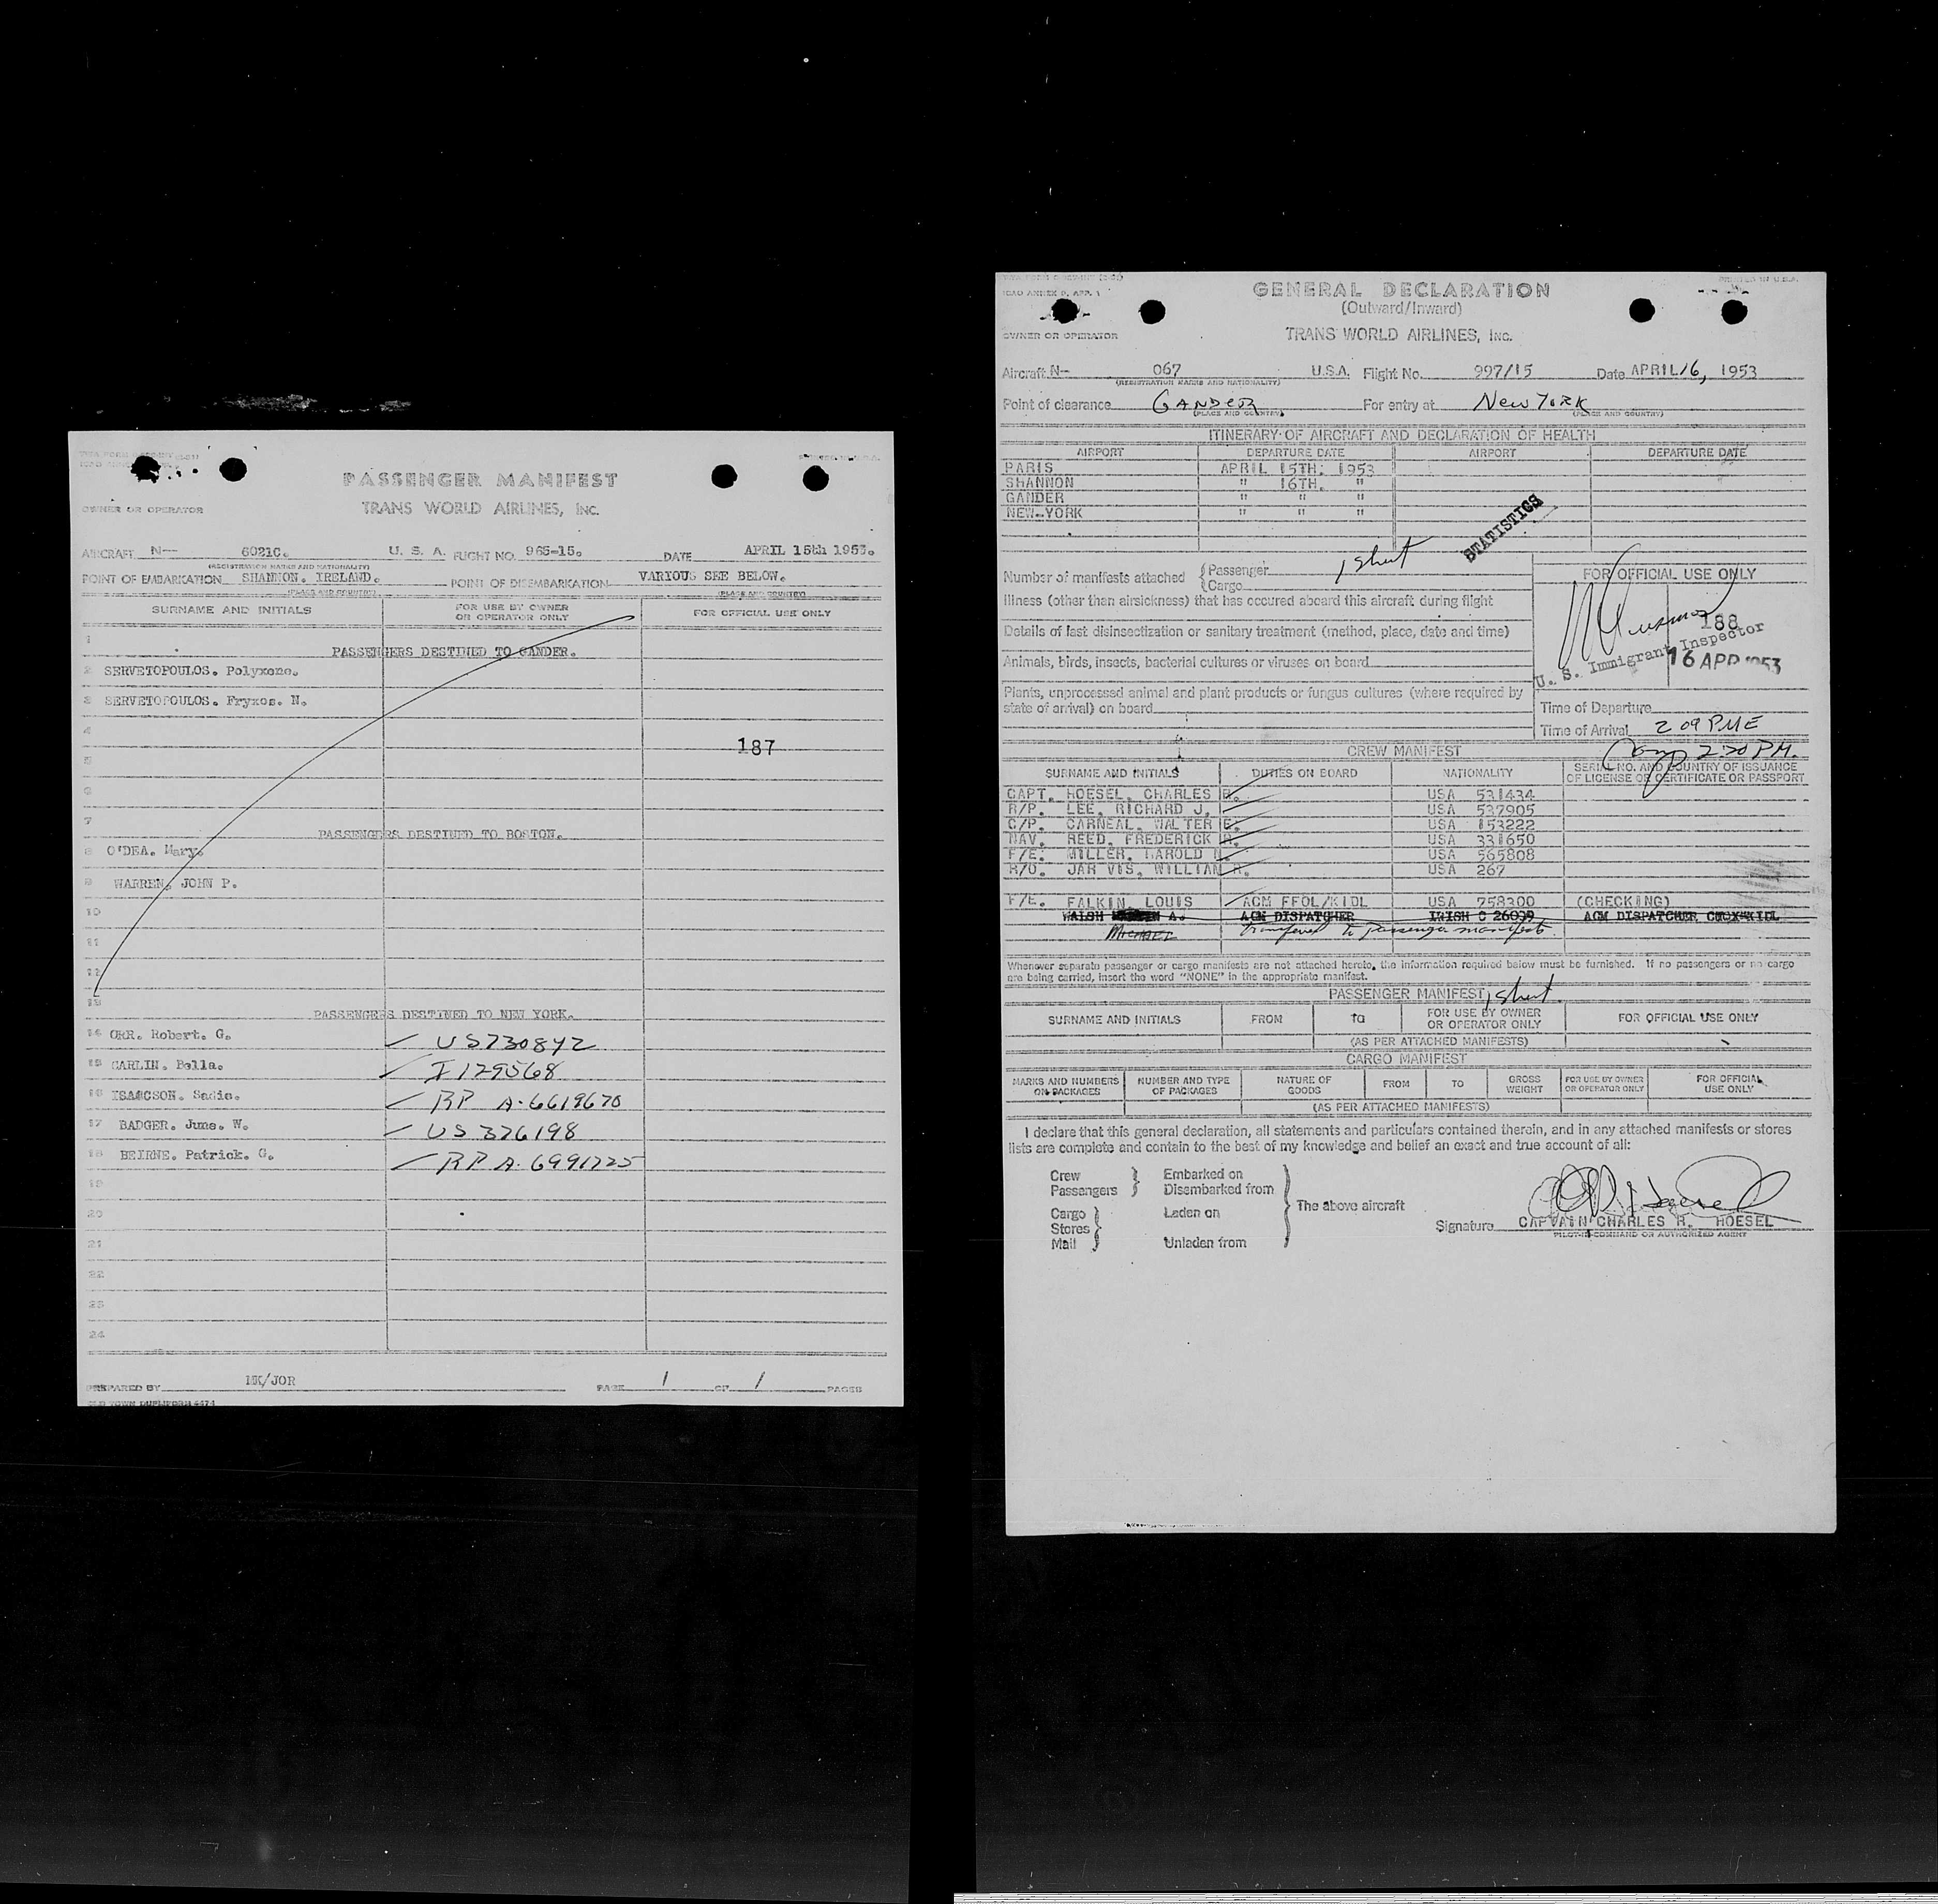 PASSENGER MANIFEST
OWNER OR OPERATOR
TRANS WORLD AIRLINES, INC.
AIRCRAFT N-- 6021C. U. S. A. FLIGHT NO. 965-15. DATE APRIL 15th 1953.
(REGISTRATION MARKS AND NATIONALITY)
POINT OF EMBARKATION SHANNON. IRELAND. POINT OF DISEMBARKATION VARIOUS SEE BELOW.
(PLACE AND COUNTRY) (PLACE AND COUNTRY)
SURNAME AND INITIALS FOR USE BY OWNER OR OPERATOR ONLY FOR OFFICIAL USE ONLY
1
PASSENGERS DESTINED TO GANDER.
2 SERVETOPOULOS. Polyxene.
3 SERVETOPOULOS. Fryxos. N.
4
187
5
6
7
PASSENGERS DESTINED TO BOSTON.
8 O'DEA. Mary.
9 WARREN, JOHN P.
10
11
12
13
PASSENGERS DESTINED TO NEW YORK.
14 ORR. Robert. G. US730842
15 CARLIN. Bella. I 129568
16 ISAACSON. Sadie. RP A-6619670
17 BADGER. June. W. US 326198
18 BEIRNE. Patrick. G. RP A-6991225
19
20
21
22
23
24
PREPARED BY MK/JOR PAGE 1 OF 1 PAGES
OLD TOWN DUPLIFORM 4474
ICAO ANNEX 9, APP. 1
GENERAL DECLARATION
(Outward/Inward)
OWNER OR OPERATOR
TRANS WORLD AIRLINES, INC.
Aircraft N-- 067 U.S.A. Flight No. 997/15 Date APRIL 16, 1953
(REGISTRATION MARKS AND NATIONALITY)
Point of clearance GANDER For entry at New YORK
(PLACE AND COUNTRY) (PLACE AND COUNTRY)
ITINERARY OF AIRCRAFT AND DECLARATION OF HEALTH
AIRPORT DEPARTURE DATE AIRPORT DEPARTURE DATE
PARIS APRIL 15TH: 1953
SHANNON " 16TH. "
GANDER " " "
NEW-YORK " " "
STATISTICS
Number of manifests attached { Passenger 1 Sheet
{ Cargo
FOR OFFICIAL USE ONLY
Illness (other than airsickness) that has occured aboard this aircraft during flight
188
Details of last disinsectization or sanitary treatment (method, place, date and time)
U. S. Immigrant Inspector
16 APR 1953
Animals, birds, insects, bacterial cultures or viruses on board
Plants, unprocessed animal and plant products or fungus cultures (where required by
state of arrival) on board
Time of Departure
Time of Arrival 2 09 PME
2:20 PM.
CREW MANIFEST
SURNAME AND INITIALS DUTIES ON BOARD NATIONALITY SERIAL NO. AND COUNTRY OF ISSUANCE OF LICENSE OR CERTIFICATE OR PASSPORT
CAPT. HOESEL, CHARLES R. USA 531434
R/P. LEE, RICHARD J. USA 537905
C/P. CARNEAL, WALTER E. USA 153222
NAV. REED, FREDERICK USA 331650
F/E. MILLER. HAROLD USA 565808
R/O. JARVIS, WILLIAM R. USA 267
F/E. FALKIN, LOUIS ACM FFOL/KIDL USA 758300 (CHECKING)
WALSH A. ACM DISPATCHER IRISH C 26039 ACM DISPATCHER
MICHAEL transfered to passenger manifests.
Whenever separate passenger or cargo manifests are not attached hereto, the information required below must be furnished. If no passengers or no cargo
are being carried, insert the word "NONE" in the appropriate manifest.
PASSENGER MANIFEST 1 Sheet
SURNAME AND INITIALS FROM TO FOR USE BY OWNER OR OPERATOR ONLY FOR OFFICIAL USE ONLY
(AS PER ATTACHED MANIFESTS)
CARGO MANIFEST
MARKS AND NUMBERS ON PACKAGES NUMBER AND TYPE OF PACKAGES NATURE OF GOODS FROM TO GROSS WEIGHT FOR USE BY OWNER OR OPERATOR ONLY FOR OFFICIAL USE ONLY
(AS PER ATTACHED MANIFESTS)
I declare that this general declaration, all statements and particulars contained therein, and in any attached manifests or stores
lists are complete and contain to the best of my knowledge and belief an exact and true account of all:
Crew Embarked on
Passengers Disembarked from
The above aircraft
Cargo Laden on
Stores
Mail Unladen from
Signature CAPTAIN CHARLES R. HOESEL
PILOT-IN-COMMAND OR AUTHORIZED AGENT